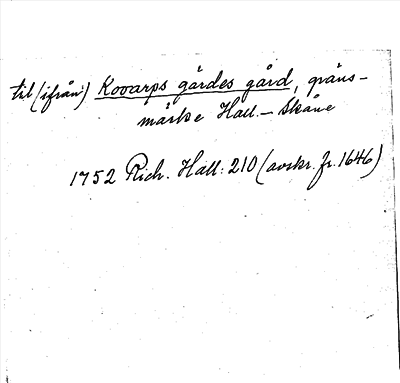 til (ifrån) Kovarps gärdes gård, gräns-
märke Hall. – Skåne
1752 Rich. Hall: 210 (avskr. fr. 1646)